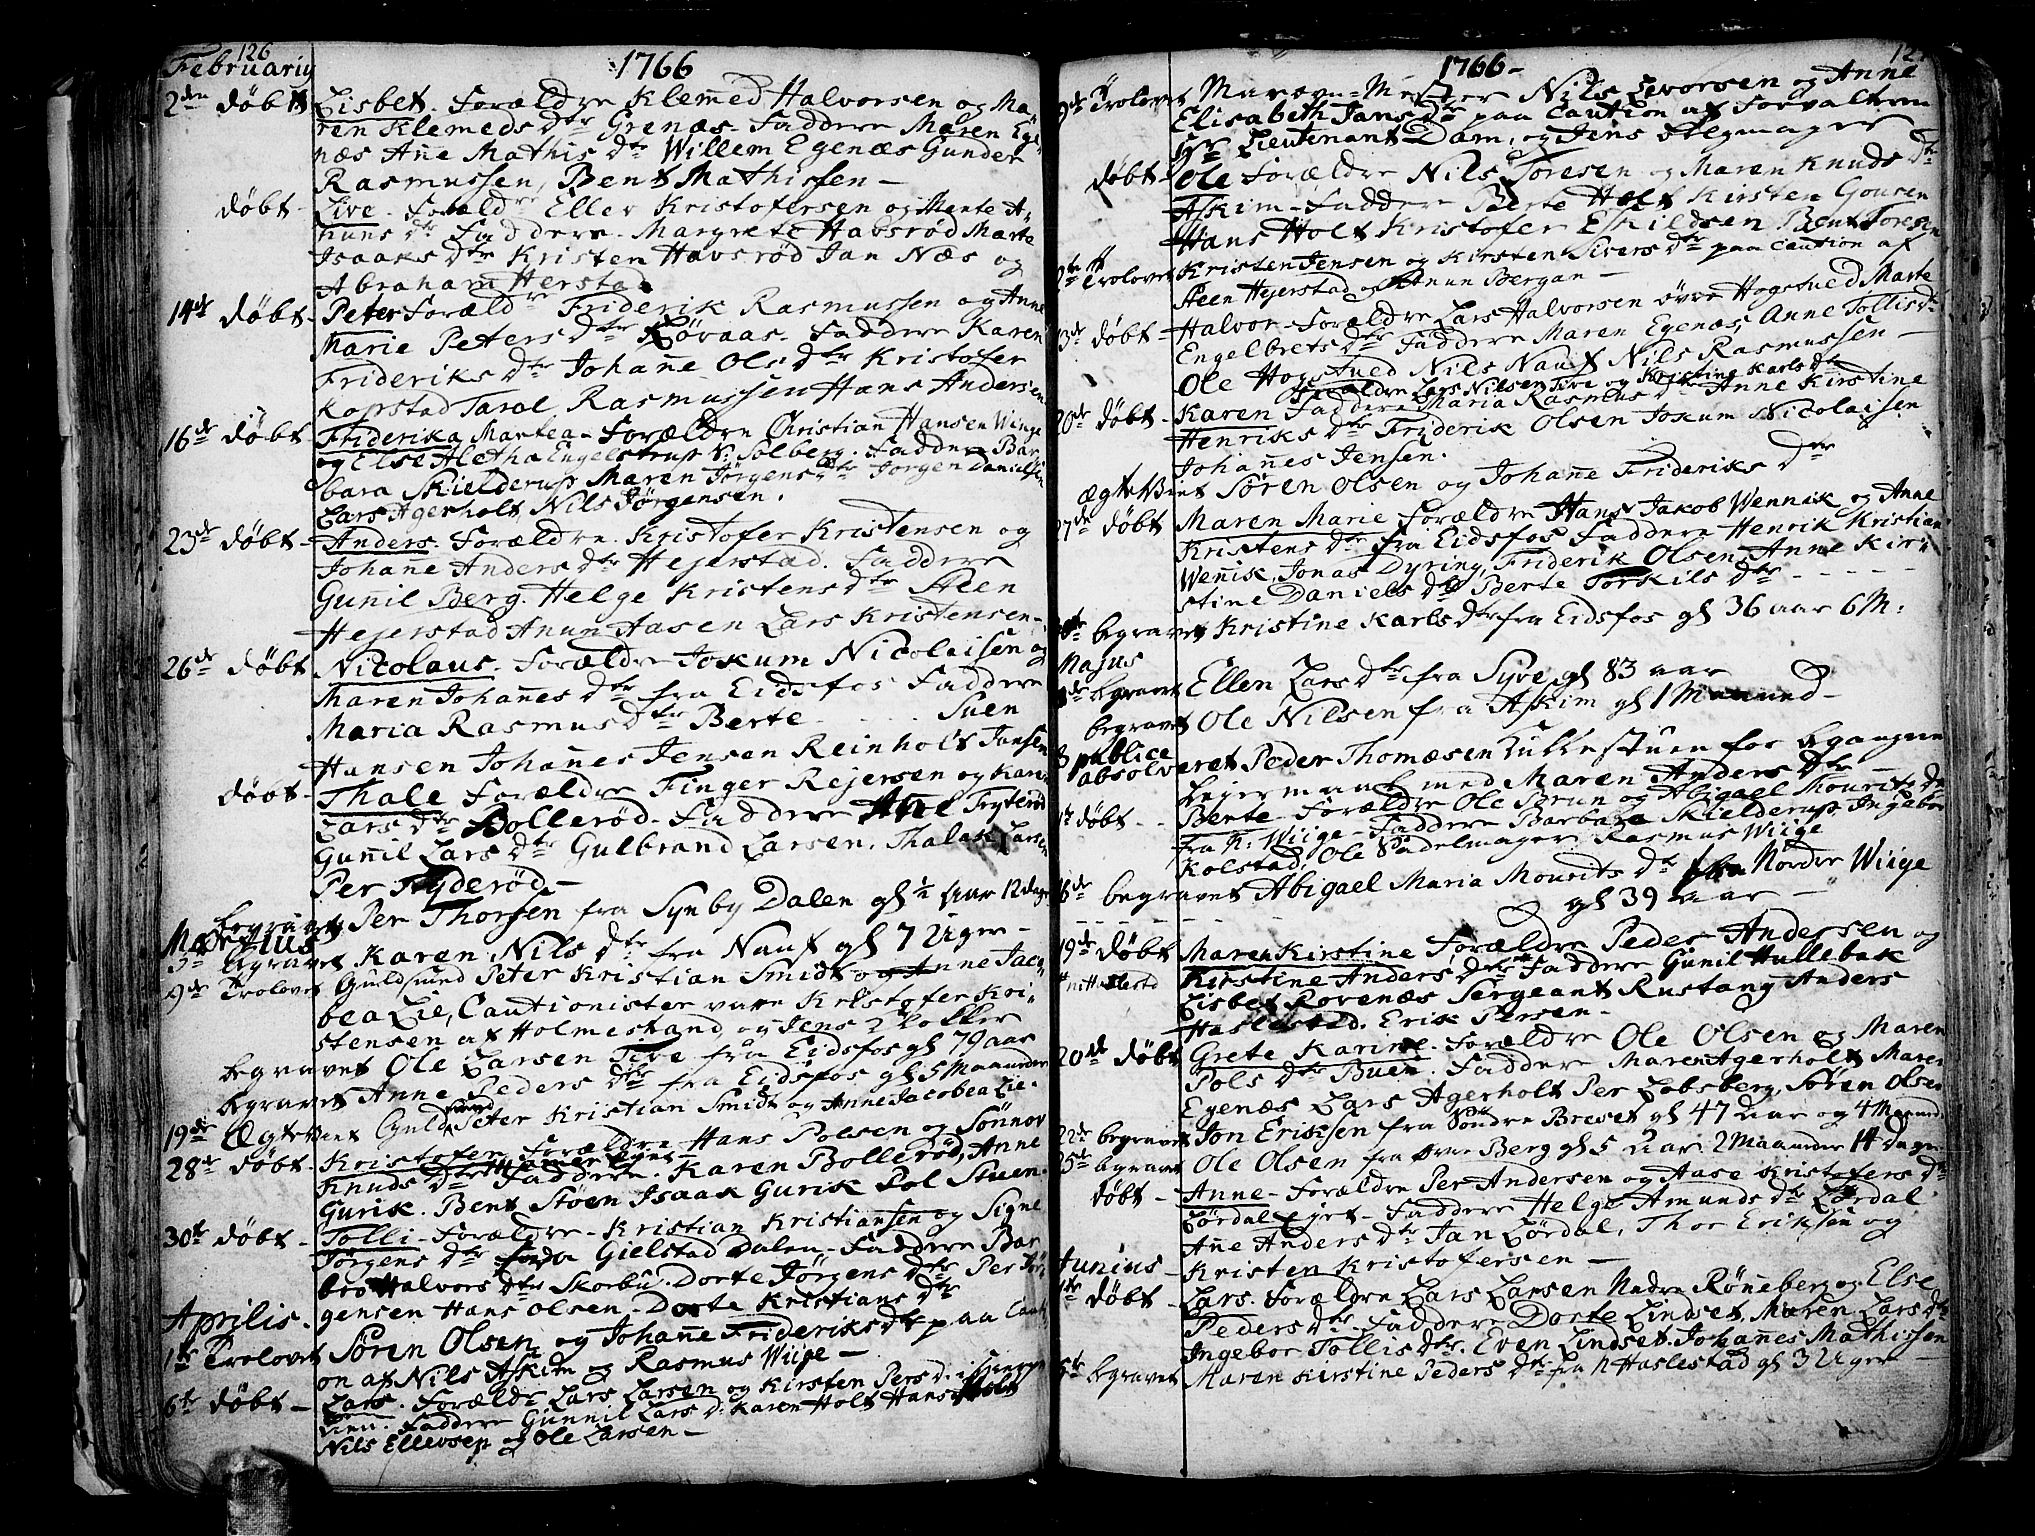 126
Februariy 1766
2den Døbt Lisbet. Forældre Klemed Halvorsen og Ma-
ren Klemeds Dtr Grenæs. Faddere Maren Ege-
næs Añe Mathis Dtr Willem Egenæs Gunder
Rasmussen, Bent Mathissen —
Døbt - Live. Foræld Ellev Kristofersen og Mente A-
Dtr Faddere. Margrete Havsrød Marte
Isaaks Dtr Kristen Havsrød Jan Næs og
Abraham Herstad
14de Døbt - Peter Foræld Friderik Rasmussen og Anne
Marie Peters Dtr Røvaas. Faddere Karen
Frideriks Dtr Johañe Ols Dtr Kristofer
Kopstad Tarol Rasmussen Hans Andersen
16de Døbt Friderika Martea - Forældre Christian Hansen Winge
og Else Aletha Engelstrup v: Solberg. Faddere Bar-
bara Skielderup Maren Jørgens Dtr Jørgen Danielsen
Lars Agerholt, Nils Jørgensen.
23de Døbt - Anders. Forældre. Kristofer Kristensen og
Johañe Anders Dtr Hejerstad. Faddere
Guñil Berg. Helge Kristens Dtr Steen
Hejerstad Anun Aasen Lars Kristensen -
26de Døbt Nicolaus. Forældre Jokum Nicolaisen og
Maren Johañes Dtr fra Eidsfos Faddere
Maria Rasmus Dtr Berte . . . . Suen
Hansen Johañes Jensen Reinholt Jansen
Døbt - Thale Forældre Finger Rejersen og Kari
Lars Dtr Bollerød - Faddere Tryterød
Guñil Lars Dtr Gulbrand Larsen. Thalak Larsen
Per Tryderød —
begravet Per Thorsen fra Synby Dalen gl ½ aar 12 dage
Martius
begravet Karen Nils Dtr fra Nauf gl 7 Uger -
9de Trolovet Guldsmed Peter Kristian Smidt og Anne Jaco-
bea Lie, Cautionister vare Kristofer Kri-
stensen af Holmestrand, og Jens Klokker
begravet Ole Larsen Tive fra Eidsfos gl 79 aar
begravet Anne Peders Dtr fra Eidsfos gl 5 Maaneder
19de Ægteviet Guldsmed Peter Kristian Smidt og Anne Jacobea Lie.
28de Døbt - Kristofer Forældre Hans Polsen og Sønnov
Knuds Dtr Faddere. Karen Bollerød, Anne
Gurik. Bent Støen Isaak Gurik Pol Stuen.
30te Døbt - Tolli - Forældre - Kristian Kristiansen og Signe
Jørgens Dtr Gielstad Dalen - Faddere Bar
bro Halvors Dtr Skorbu. Dorte Jørgens Dtr Per Jør-
gensen Hans Olsen - Dorte Kristians Dtr
Aprilis.
1te Trolovet Søren Olsen og Johañe Frideriks Dtr paa Cauti-
on af Nils Askim og Rasmus Wiige —
6te Døbt - Lars. Foræld Lars Larsen og Kirsten Pers D.
Faddere Gunnil Lars D. Karen Holt Hans Holt
Nils Ellevsen og Ole Larsen —
127
1766 -
9de Trolovet Masovn-Mester Nils Levorsen og Anne
Elisabeth Jans Dtr paa Caution af Forvalteren
Hr Lieutenant Dam, og Jens Belgmager
Døbt - Ole Forældre Nils Toresen og Maren Knuds Dtr
Askim - Faddere Berte Holt Kirsten Gouren
Hans Holt Kristofer Eskildsen Bent Toresen
Trolovet Kristen Jensen og Kirsten Sivers Dtr paa Caution af
Steen Hejerstad og Anun Bergan —
13de Døbt - Halvor - Forældre Lars Halvorsen øvre Hogstved Marte
Engelbrets Dtr Faddere Maren Egenæs, Anne Tollis Dtr
Ole Hogstved Nils Nauf Nils Rasmussen —
Forældre Lars Nilsen Tive og Kristine Karls Dtr
20de Døbt - Karen Faddere Maria Rasmus Dtr Anne Kirstine
Henriks Dtr Friderik Olsen Jokum Nicolaisen
Johañes Jensen.
Ægteviet Søren Olsen og Johañe Frideriks Dtr
27de Døbt Maren Marie Forældre Hans Jakob Wennik og Anne
Kristens Dtr fra Eidsfos Faddere Henrik Kristian
Weñik, Jonas Dyring, Friderik Olsen, Anne Kir-
stine Daniels Dtr Berte Torkils Dtr - - - - -
begravet Kristine Karls Dtr fra Eidsfos gl 36 aar 6 M:
Majus
begravet Ellen Lars Dtr fra Syve, gl 83 aar
begravet Ole Nilsen fra Askim gl 1 Maaned -
publice
absolveret Peder Thomæsen Tullestuen for begangne
Lejermaal med Maren Anders Dtr —
Døbt - - Bente - Forældre Ole Brun og Abigael Mourits Dtr
fra N: Wiige - Faddere Barbara Skielderup, Ingebor
Kolstad, Ole Sadelmager, Rasmus Wiige
begravet Abigael Maria Mourits Dtr fra Nordre Wiige
gl 39 aar —
19de Døbt Maren Kirstine Forældre Peder Andersen og
Kirstine Anders Dtr Faddere Gunil Hullebak
Lisbet Rovenæs Sergeant Rustang Anders
Haslestad. Erik Persen -
20de Døbt Grete Karine. Forældre Ole Olsen og Maren
Pols Dtr Buen. Faddere Maren Agerholt Maren
Egenæs Lars Agerholt Per Lobsberg, Søren Olsen
22de begravet Jon Eriksen fra Søndre Breset gl 47 aar og 4 Maaned:
25de begravet Ole Olsen fra Berg gl 5 aar 2 Maaneder 14 Dage
Døbt - Anne - Forældre Per Andersen og Aase Kristofers Dtr
Lørdal Ejet - Faddere Helge Amunds Dtr Lørdal
Añe Anders Dtr Jan Lørdal, Thor Eriksen og
Kristen Kristofersen —
Junius
1te Døbt - Lars. Forældre Lars Larsen Nedre Røneberg og Else
Peders Dtr - Faddere Dorte Lindset, Maren Lars Dtr
Ingebor Tollis Dtr. Even Lindset. Johañes Mathissen
5te begravet Maren Kirstine Peders Dtr fra N Haslestad gl 3 Uger —